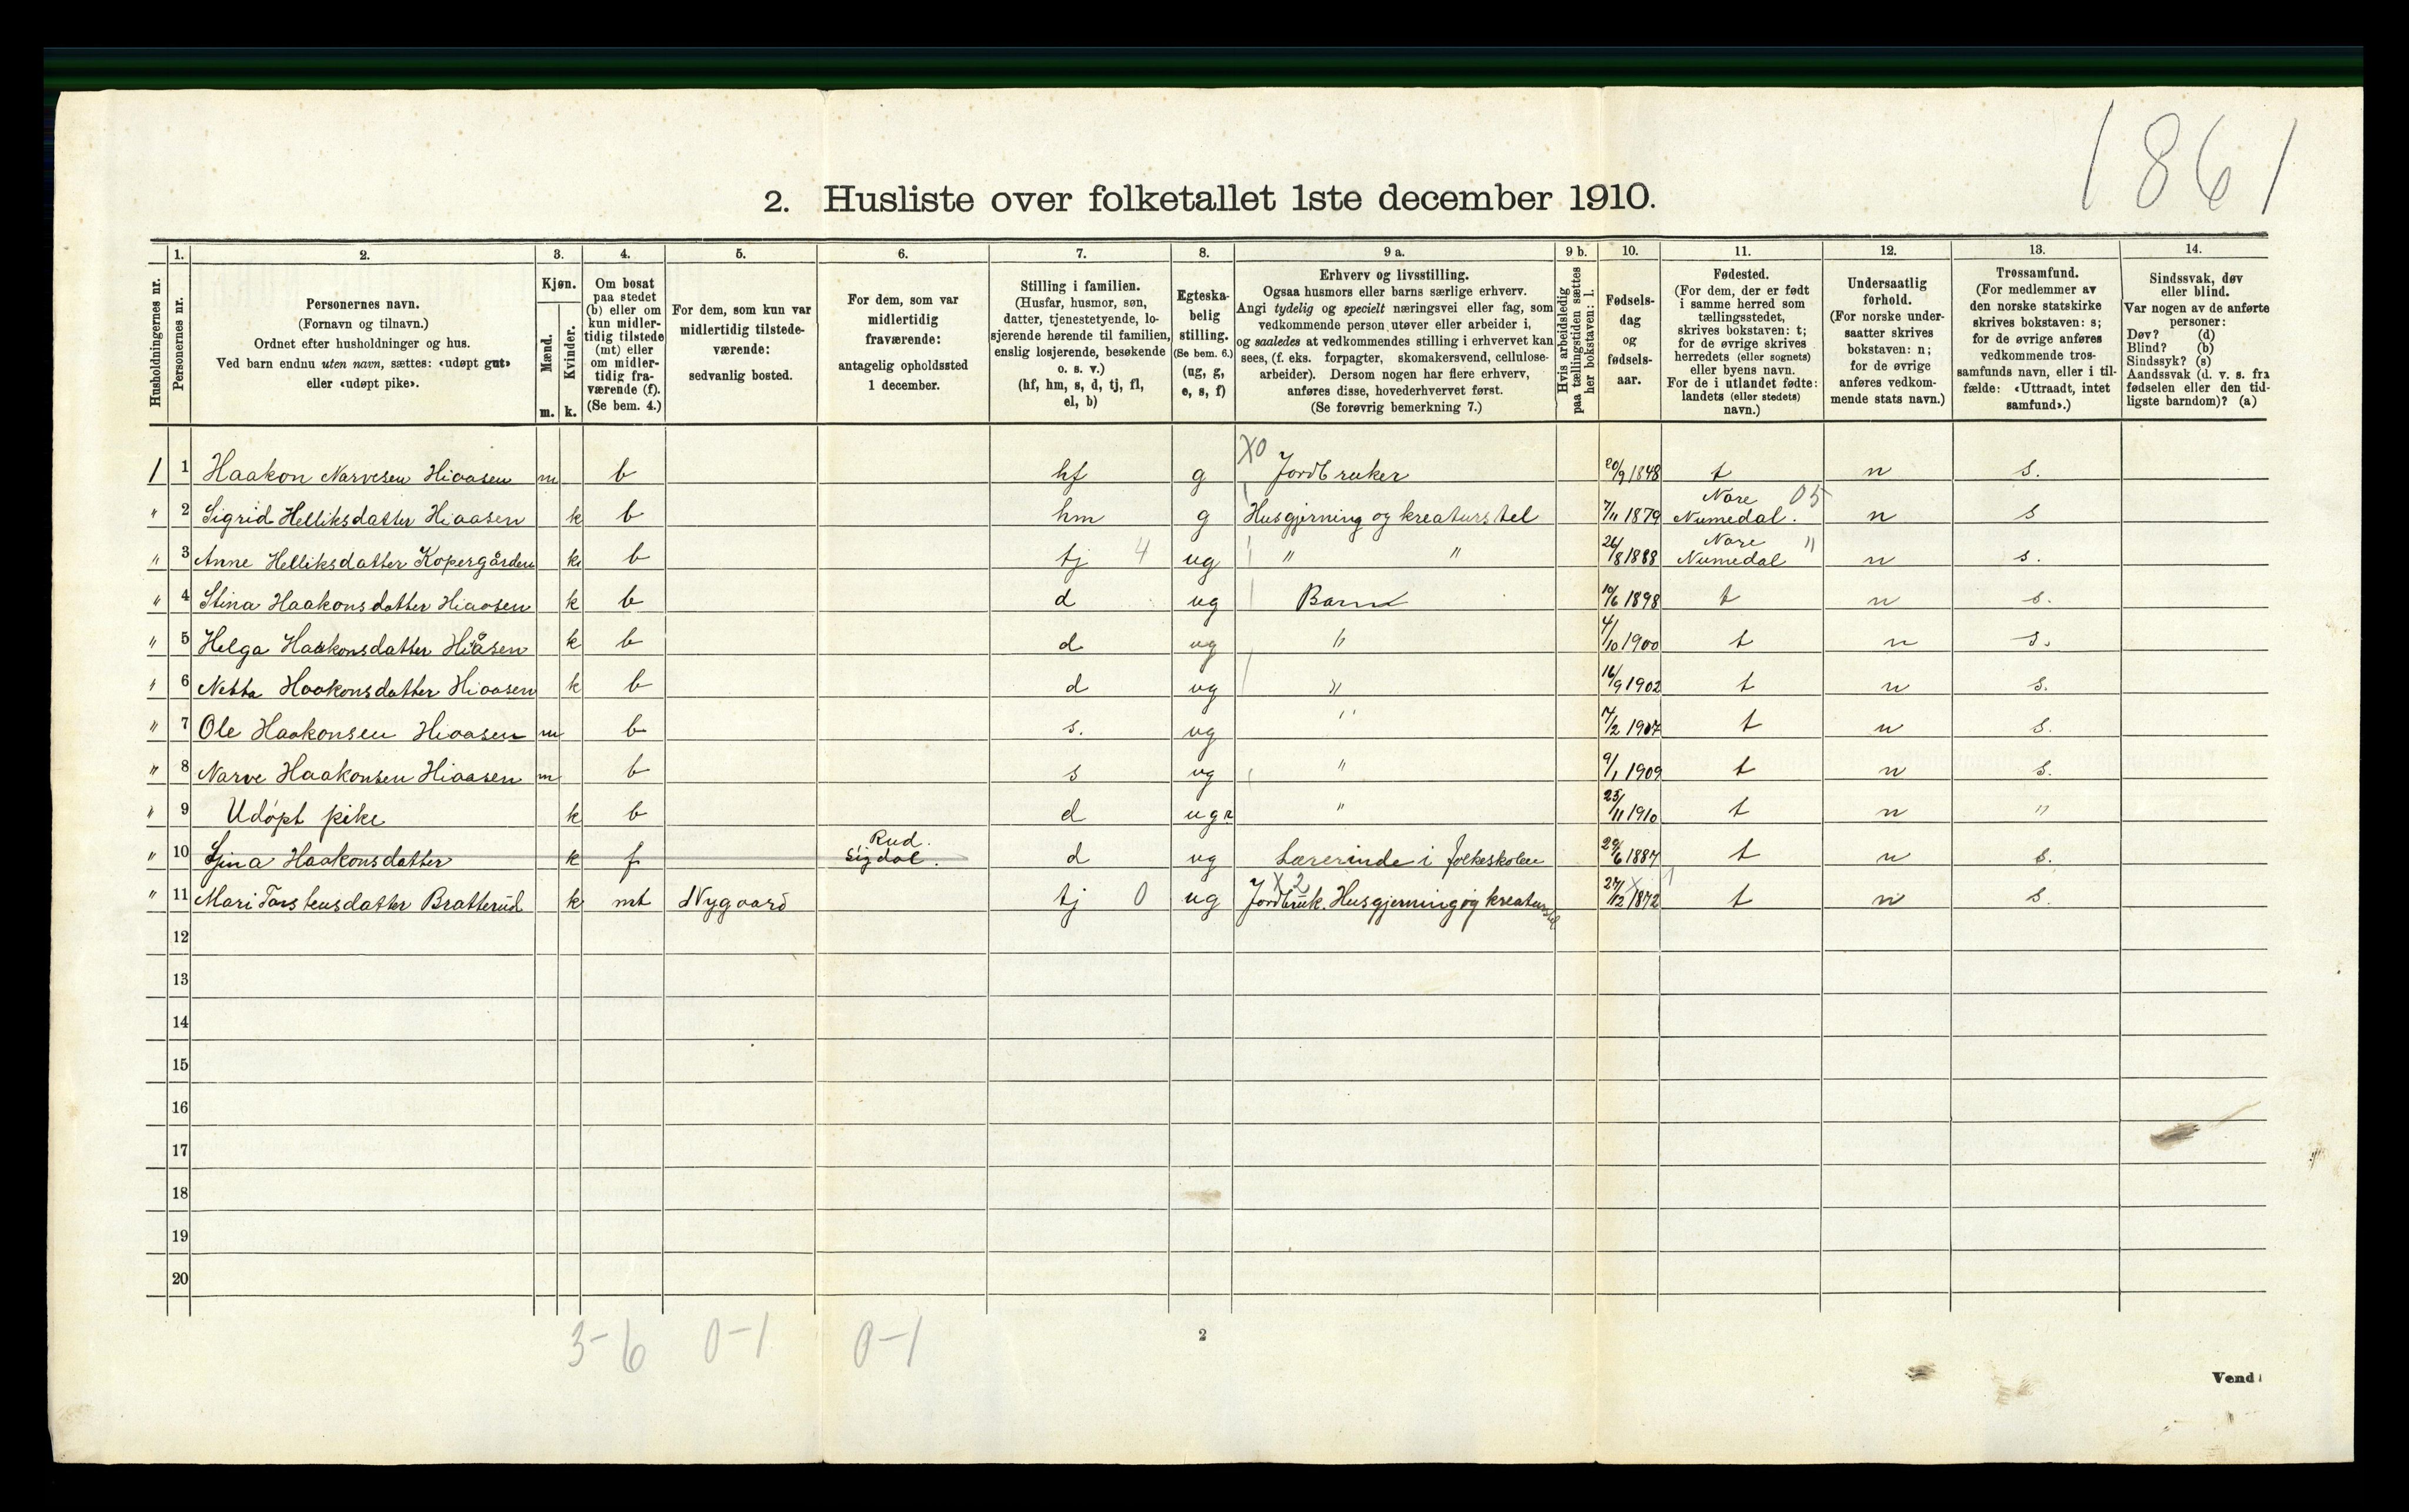 1861
2. Husliste over folketallet 1ste december 1910.
Husholdningernes nr.
1.
Personernes nr.
2.
Personernes navn.
(Fornavn og tilnavn.)
Ordnet efter husholdninger og hus.
Ved barn endnu uten navn, sættes: «udøpt gut»
eller «udøpt pike».
3.
Kjøn.
Mænd.
Kvinder.
m. k.
4.
Om bosat
paa stedet
(b) eller om
kun midler-
tidig tilstede
(mt) eller
om midler-
tidig fra-
værende (f).
(Se bem. 4.)
5.
For dem, som kun var
midlertidig tilstede-
værende:
sedvanlig bosted.
6.
For dem, som var
midlertidig
fraværende:
antagelig opholdssted
1 december.
7.
Stilling i familien.
(Husfar, husmor, søn,
datter, tjenestetyende, lo-
sjerende hørende til familien,
enslig losjerende, besøkende
o. s. v.)
(hf, hm, s, d, tj, fl,
el, b)
8.
Egteska-
belig
stilling.
(Se bem. 6.)
(ug, g,
e, s, f)
9 a.
Erhverv og livsstilling.
Ogsaa husmors eller barns særlige erhverv.
Angi tydelig og specielt næringsvei eller fag, som
vedkommende person utøver eller arbeider i,
og saaledes at vedkommendes stilling i erhvervet kan
sees, (f. eks. forpagter, skomakersvend, cellulose-
arbeider). Dersom nogen har flere erhverv,
anføres disse, hovederhvervet først.
(Se forøvrig bemerkning 7.)
9 b.
Hvis arbeidsledig
paa tællingstiden sættes
her bokstaven: l.
10.
Fødsels-
dag
og
fødsels-
aar.
11.
Fødested.
(For dem, der er født
i samme herred som
tællingsstedet,
skrives bokstaven: t;
for de øvrige skrives
herredets (eller sognets)
eller byens navn.
For de i utlandet fødte:
landets (eller stedets)
navn.)
12.
Undersaatlig
forhold.
(For norske under-
saatter skrives
bokstaven: n;
for de øvrige
anføres vedkom-
mende stats navn.)
13.
Trossamfund.
(For medlemmer av
den norske statskirke
skrives bokstaven: s;
for de øvrige anføres
vedkommende tros-
samfunds navn, eller i til-
fælde: «Uttraadt, intet
samfund».)
14.
Sindssvak, døv
eller blind.
Var nogen av de anførte
personer:
Døv? (d)
Blind? (b)
Sindssyk? (s)
Aandssvak (d. v. s. fra
fødselen eller den tid-
ligste barndom)? (a)
X0
1 1 Haakon Narvesen Hiaasen m b hf g Jordbruker 20/9 1848 t n s.
Nore 05
" 2 Sigrid Helliksdatter Hiaasen k b hm g Husgjerning og kreaturstel 7/11 1879 Numedal. n s
Nore "
" 3 Anne Helliksdatter Kopergården k b tj 4 ug " " 26/8 1888 Numedal n s.
" 4 Stina Haakonsdatter Hiaasen k b d ug Barn 10/6 1898 t n s.
" 5 Helga Haakonsdatter Hiåsen k b d ug " 4/10 1900 t n s.
" 6 Netta Haakonsdatter Hiaasen k b d ug " 16/9 1902 t n s.
" 7 Ole Haakonsen Hiaasen m b s. ug " 17/2 1907 t n s.
" 8 Narve Haakonsen Hiaasen m b s ug " 9/1 1909 t n s.
" 9 Udøpt pike k b d ug " 25/11 1910 t n "
Rud.
" 10 Gina Haakonsdatter k f Sigdal. d ug Lærerinde i folkeskolen 29/6 1887 t n s.
X 2
" 11 Mari Torstensdatter Bratterud k mt Nygaard tj 0 ug Jordbruk. Husgjerning og kreaturstel 27/12 1872 t n s.
12
13
14
15
16
17
18
19
20
3-6 0-1 0-1
2
Vend